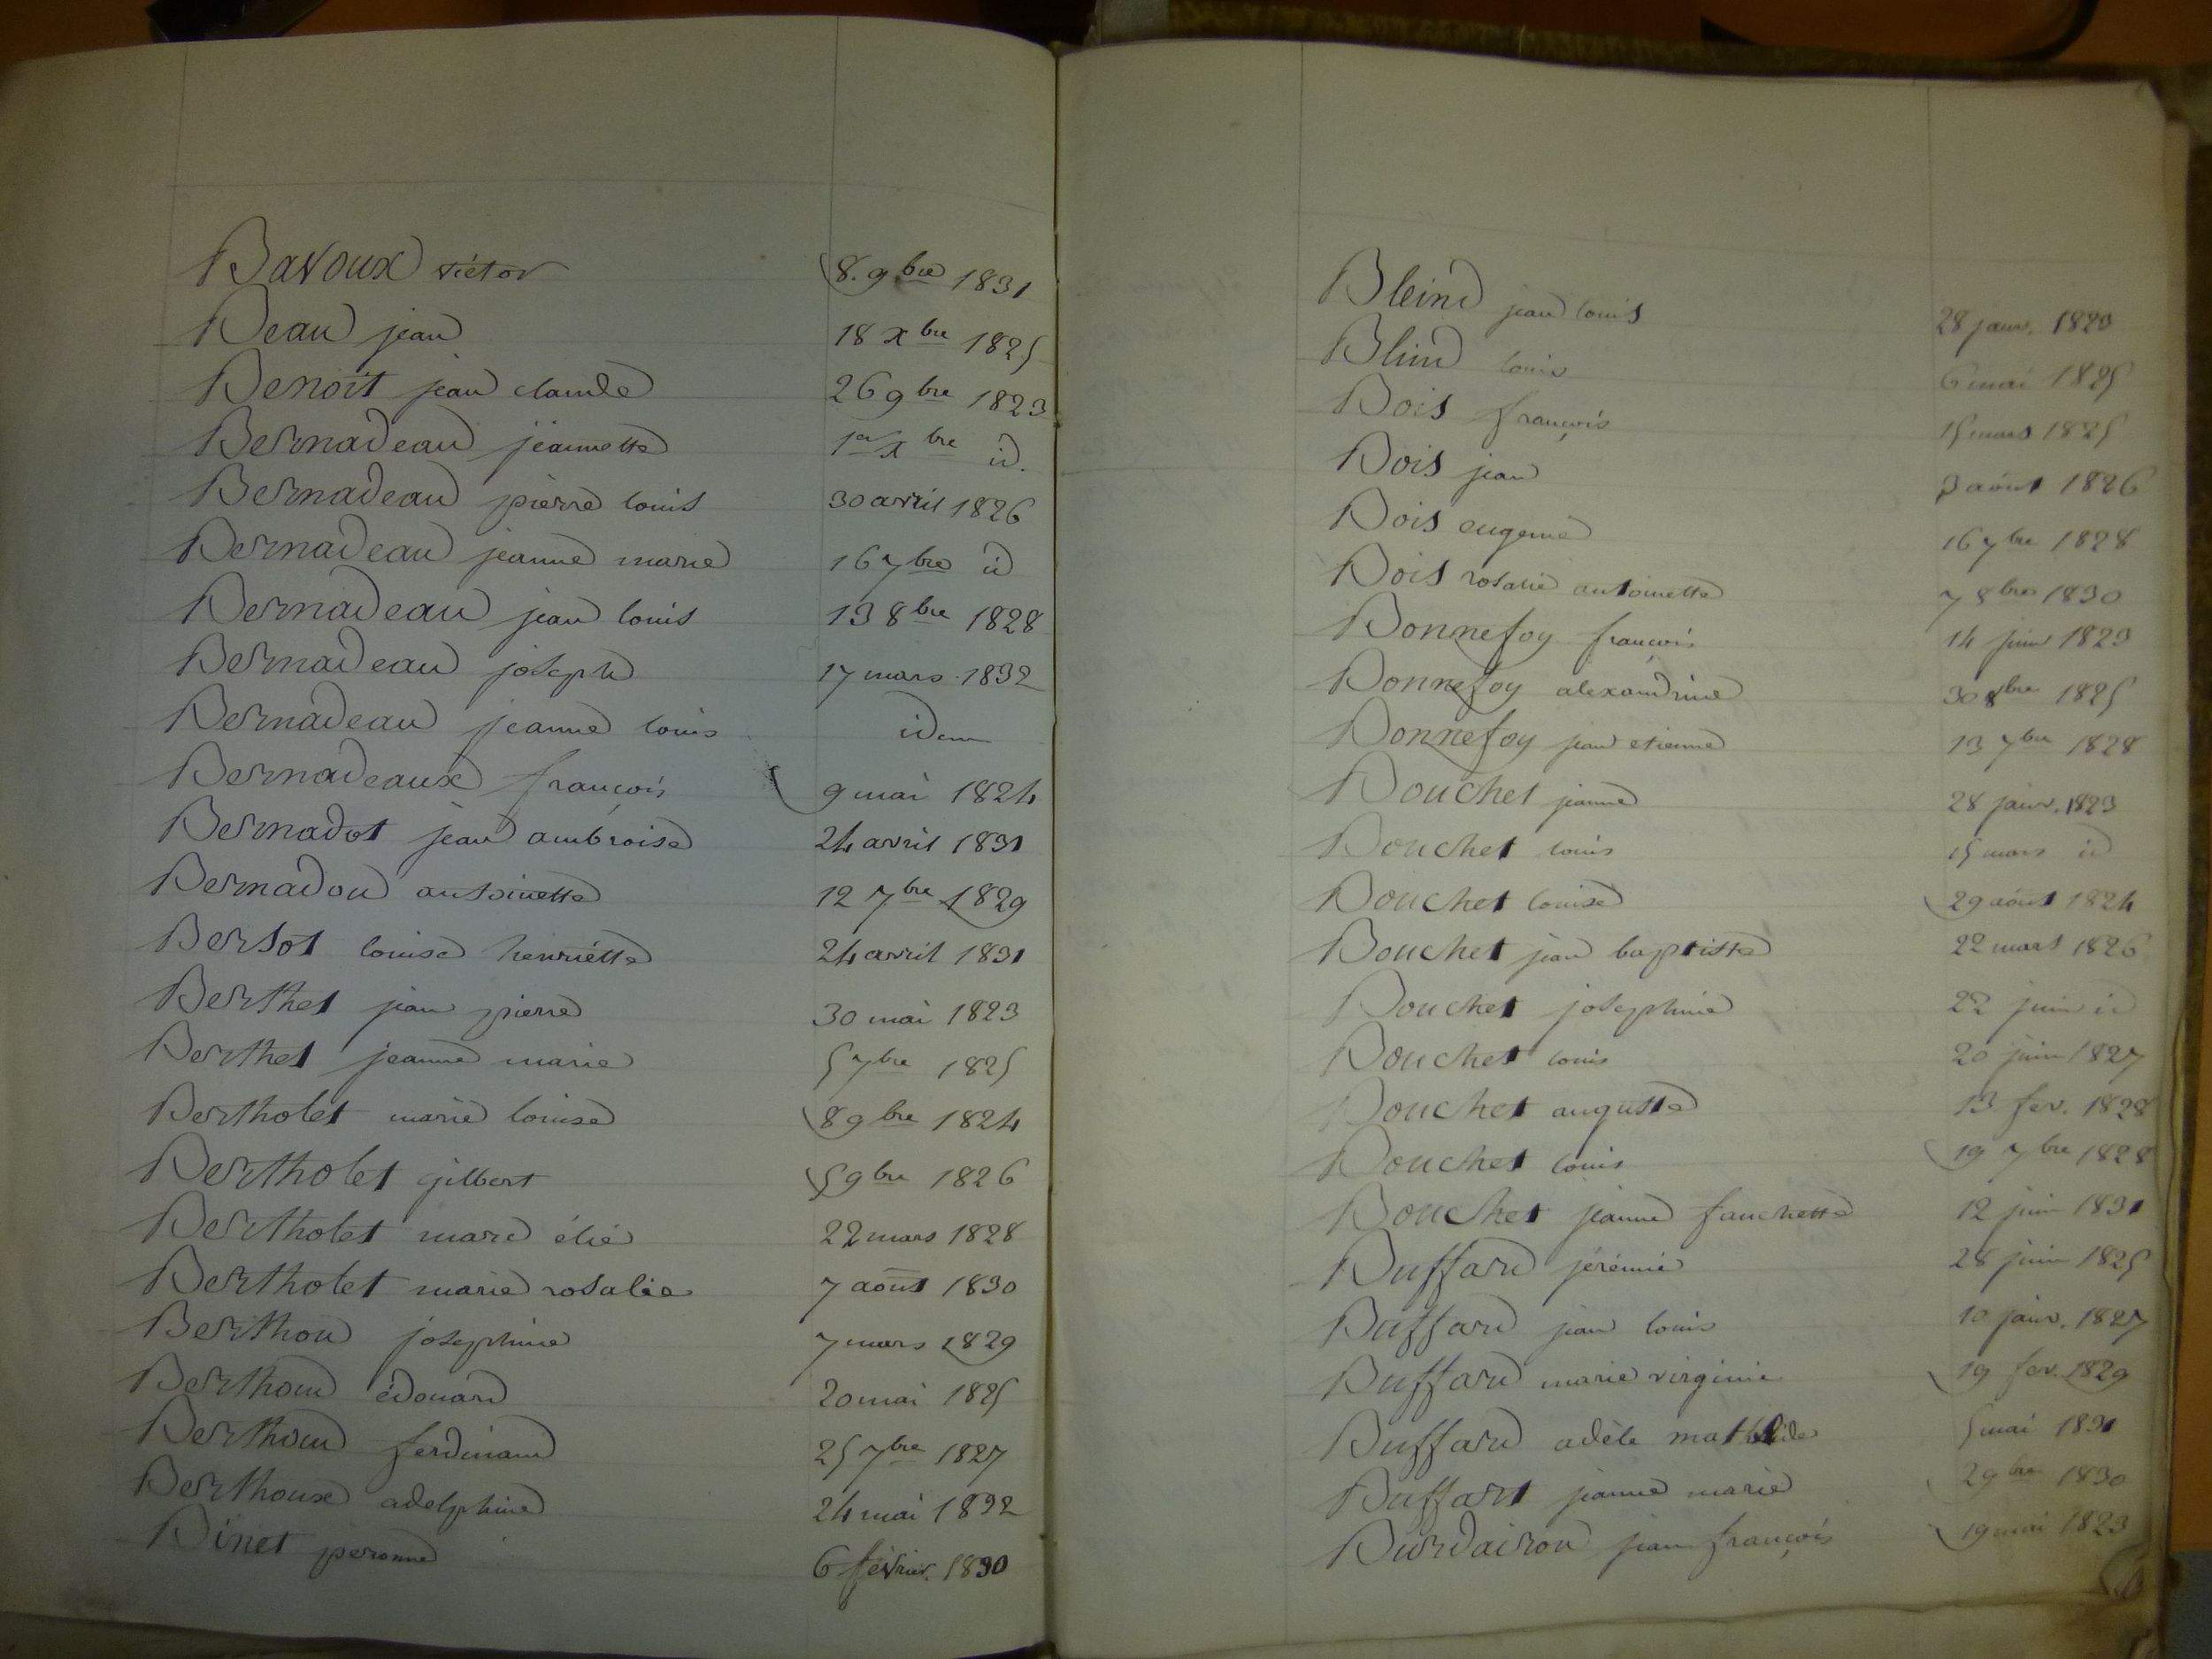 Bavoux victor 8. 9bre 1831
Beau jean 18 xbre 1825
Benoit jean claude 26 9bre 1823
Bernadeau jeannette 1er xbre id.
Bernadeau pierre louis 30 avril 1826
Bernadeau jeanne marie 16 7bre id
Bernadeau jean louis 13 8bre 1828
Bernadeau joseph 17 mars 1832
Bernadeau jeanne louis idem
Bernadeaux françois 9 mai 1824
Bernadot jean ambroise 24 avril 1831
Bernadou antoinette 12 7bre 1829
Bersot louise henriette 24 avril 1831
Berthet jean pierre 30 mai 1823
Berthet jeanne marie 5 7bre 1825
Bertholet marie louise 8 9bre 1824
Bertholet gilbert 5 9bre 1826
Bertholet marc élie 22 mars 1828
Bertholet marie rosalie 7 août 1830
Berthou josephine 7 mars 1829
Berthoud édouard 20 mai 1825
Berthoud ferdinand 25 7bre 1827
Berthoux adelphine 24 mai 1832
Binet peronne 6 février. 1830
Bleind jean louis 28 janv. 1823
Blind louis 6 mai 1825
Bois françois 15 mars 1825
Bois jean 3 août 1826
Bois eugenie 16 7bre 1828
Bois rosalie antoinette 7 8bre 1830
Bonnefoy françois 14 juin 1823
Bonnefoy alexandrine 30 8bre 1825
Bonnefoy jean etienne 13 7bre 1828
Bouchet jeanne 28 janv. 1823
Bouchet louis 15 mars id
Bouchet louise 29 août 1824
Bouchet jean baptiste 22 mars 1826
Bouchet josephine 22 juin id
Bouchet louis 20 juin 1827
Bouchet auguste 13 fev. 1828
Bouchet louis 19 7bre 1828
Bouchet jeanne fanchette 12 juin 1831
Buffard jérémie 28 juin 1825
Buffard jean louis 10 janv. 1827
Buffard marie virginie 19 fev. 1829
Buffard adèle mathilde 5 mai 1831
Buffart jeanne marie 2 9bre 1830
Burdairon jean françois 19 mai 1823